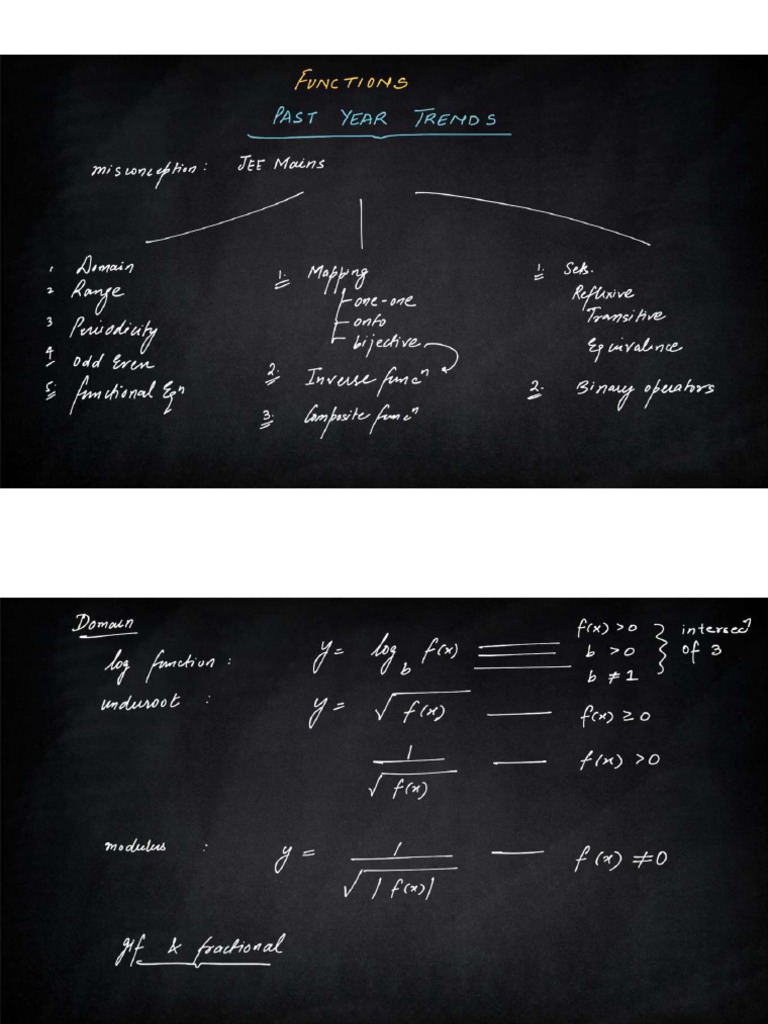 FUNCTIONS
PAST YEAR TRENDS
misconception : JEE Mains
1 Domain
2 Range
3 Periodicity
4 Odd Even
5. functional Eqⁿ
1. Mapping
one-one
onto
bijective
2. Inverse funcⁿ
3. Composite funcⁿ
1. Sets.
Reflixive
Transitive
Equivalence
2. Binary operators
Domain
log function : y = log_b f(x) f(x) > 0
b > 0
b ≠ 1
intersecⁿ
of 3
underoot : y = √f(x) f(x) ≥ 0
1/√f(x) f(x) > 0
modulus : y = 1/√|f(x)| f(x) ≠ 0
gif & fractional